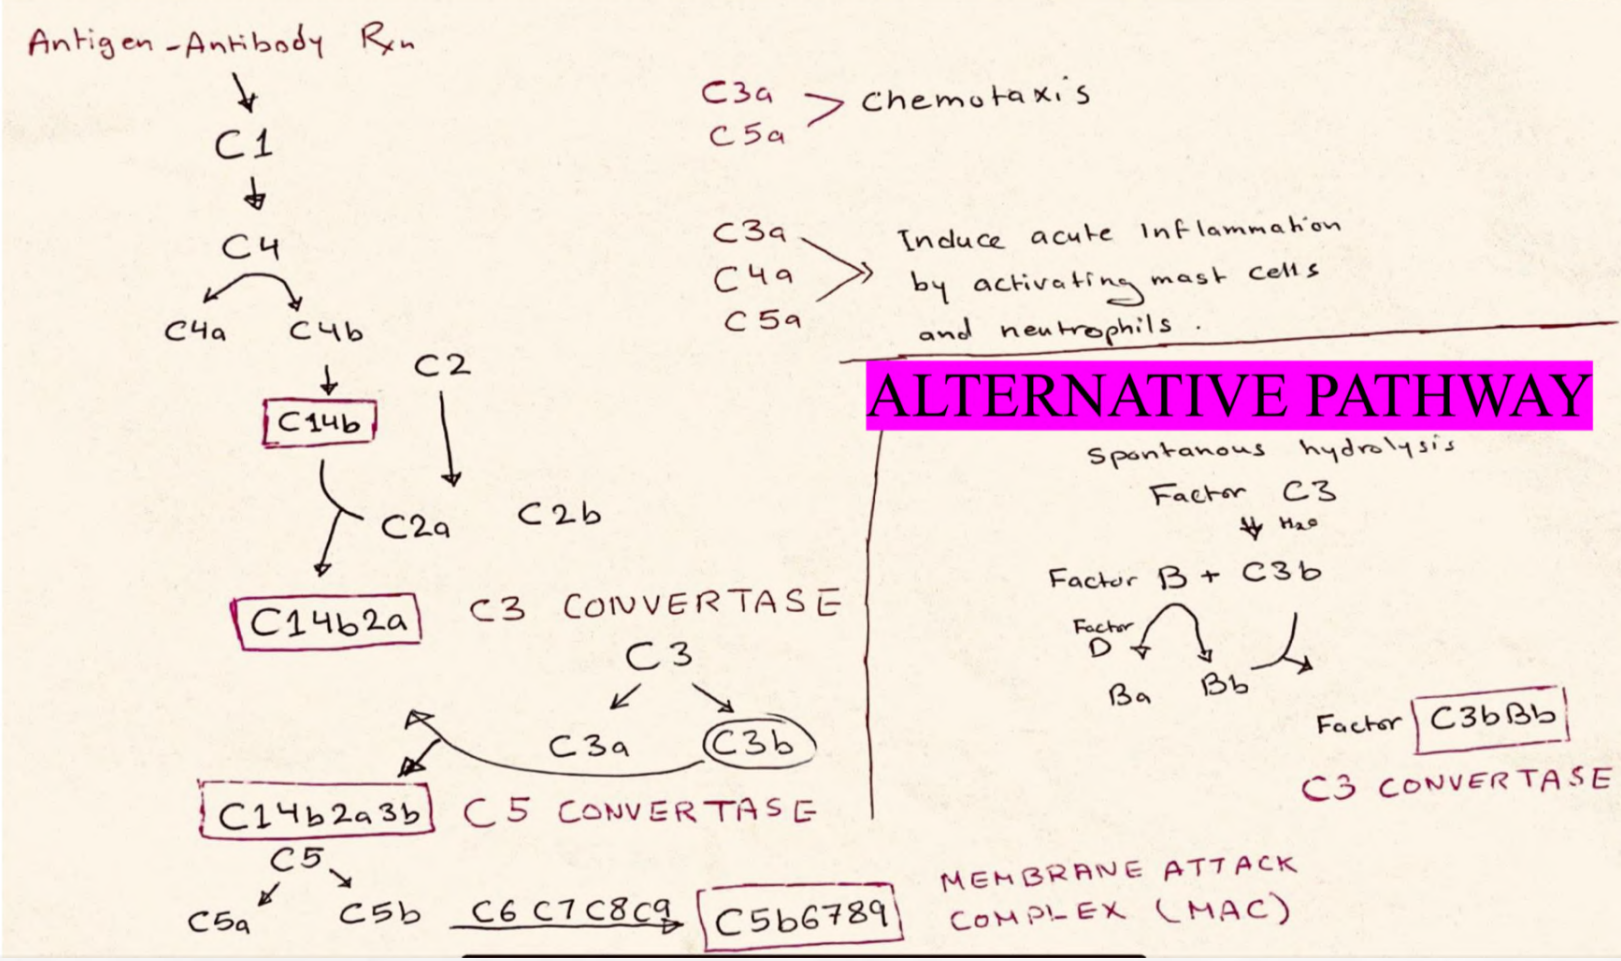 Antigen-Antibody Rxn
C1
C4
C4a C4b
C2
C14b
C2a C2b
C14b2a C3 CONVERTASE
C3
C3a C3b
C14b2a3b C5 CONVERTASE
C5
C5a C5b C6 C7 C8 C9 C5b6789
MEMBRANE ATTACK
COMPLEX (MAC)
C3a
C5a
Chemotaxis
C3a
C4a
C5a
Induce acute Inflammation
by activating mast cells
and neutrophils.
ALTERNATIVE PATHWAY
Spontanous hydrolysis
Factor C3
H2O
Factor B + C3b
Factor
D
Ba Bb
Factor C3bBb
C3 CONVERTASE